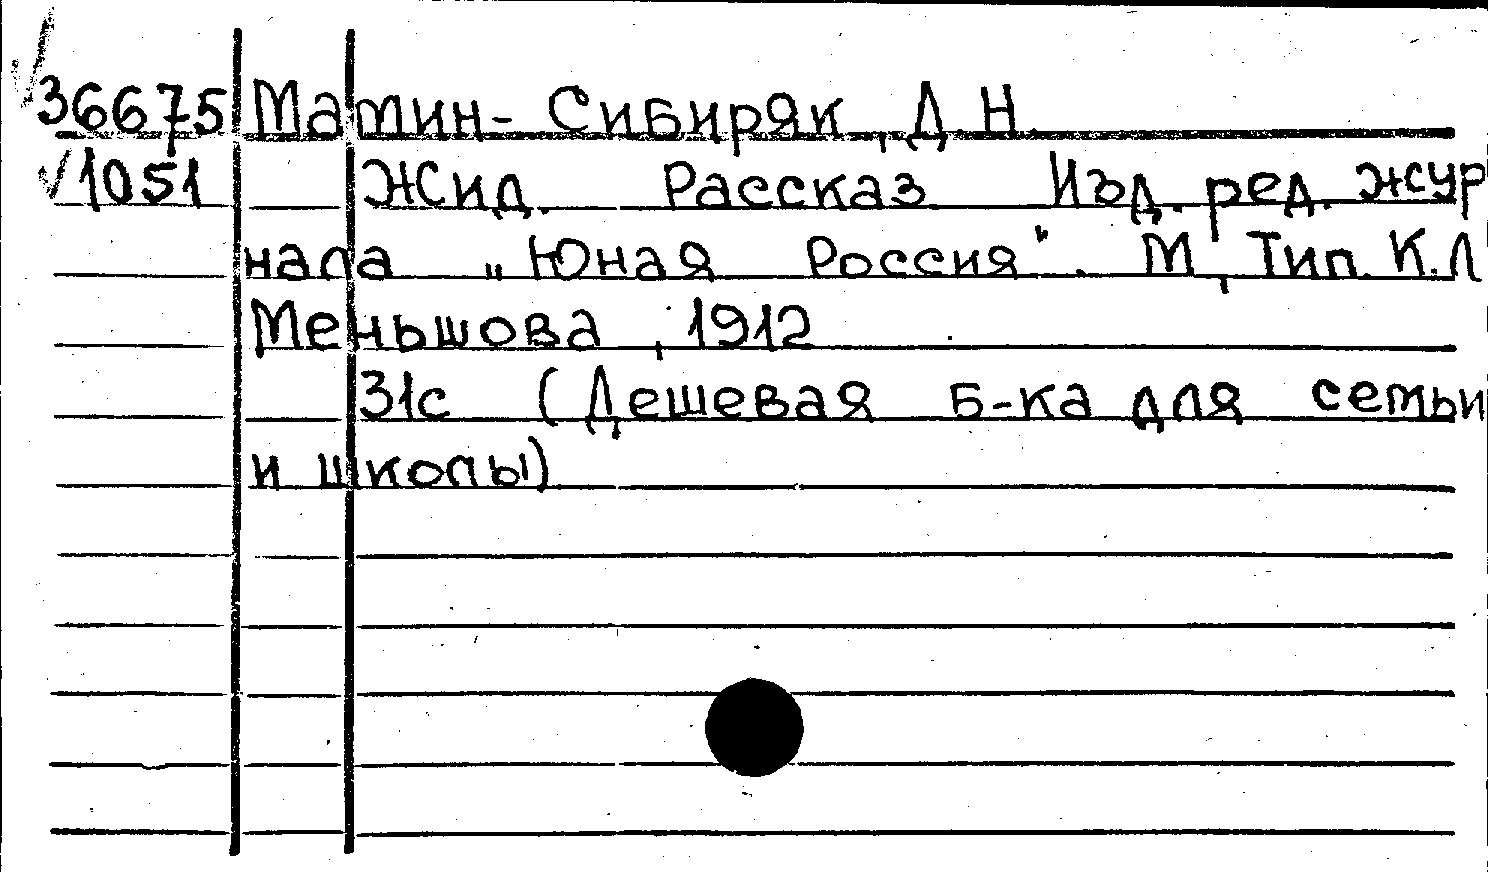 36675 Мамин-Сибиряк, Д.Н.
1051 Жид. Рассказ Изд. ред. жур
нала "Юная Россия". М, Тип. К.Л
Меньшова, 1912
31с (Дешевая б-ка для семьи
и школы)